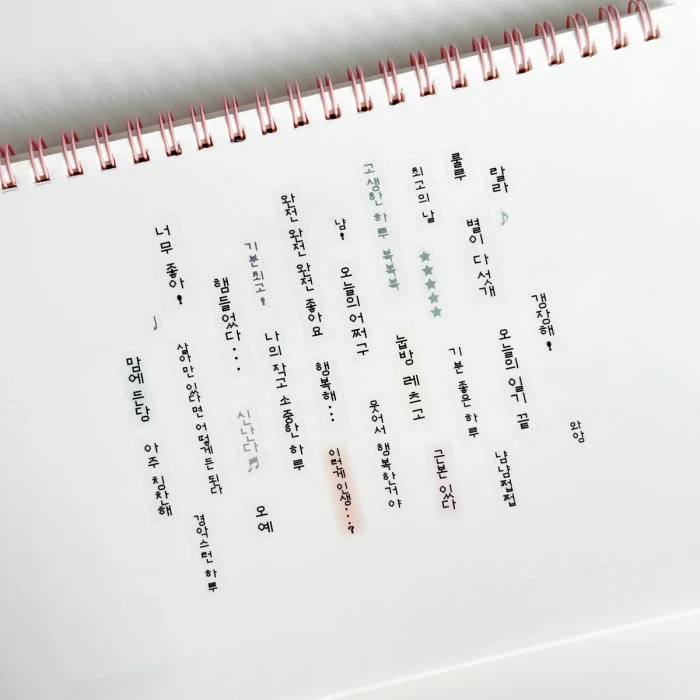 너무 좋아!
맘에 든당
아주 칭찬해
햄들었다...
살아만 있다면 어떻게든 된다
경악스런 하루
기분최고!
신난다♬
오예
완전 완전 완전 좋아요
나의 작고 소중한 하루
냠!
오늘의어쩌구
행복해...
이런게 인생...?
고생한 하루 북북북
눕방 레츠고
웃어서 행복한거야
최고의 날
★★★★★
기분 좋은 하루
근본 있다
룰루
랄라♪
별이 다섯개
오늘의 일기 끝
냠냠쩝쩝
갬장해!
와앙